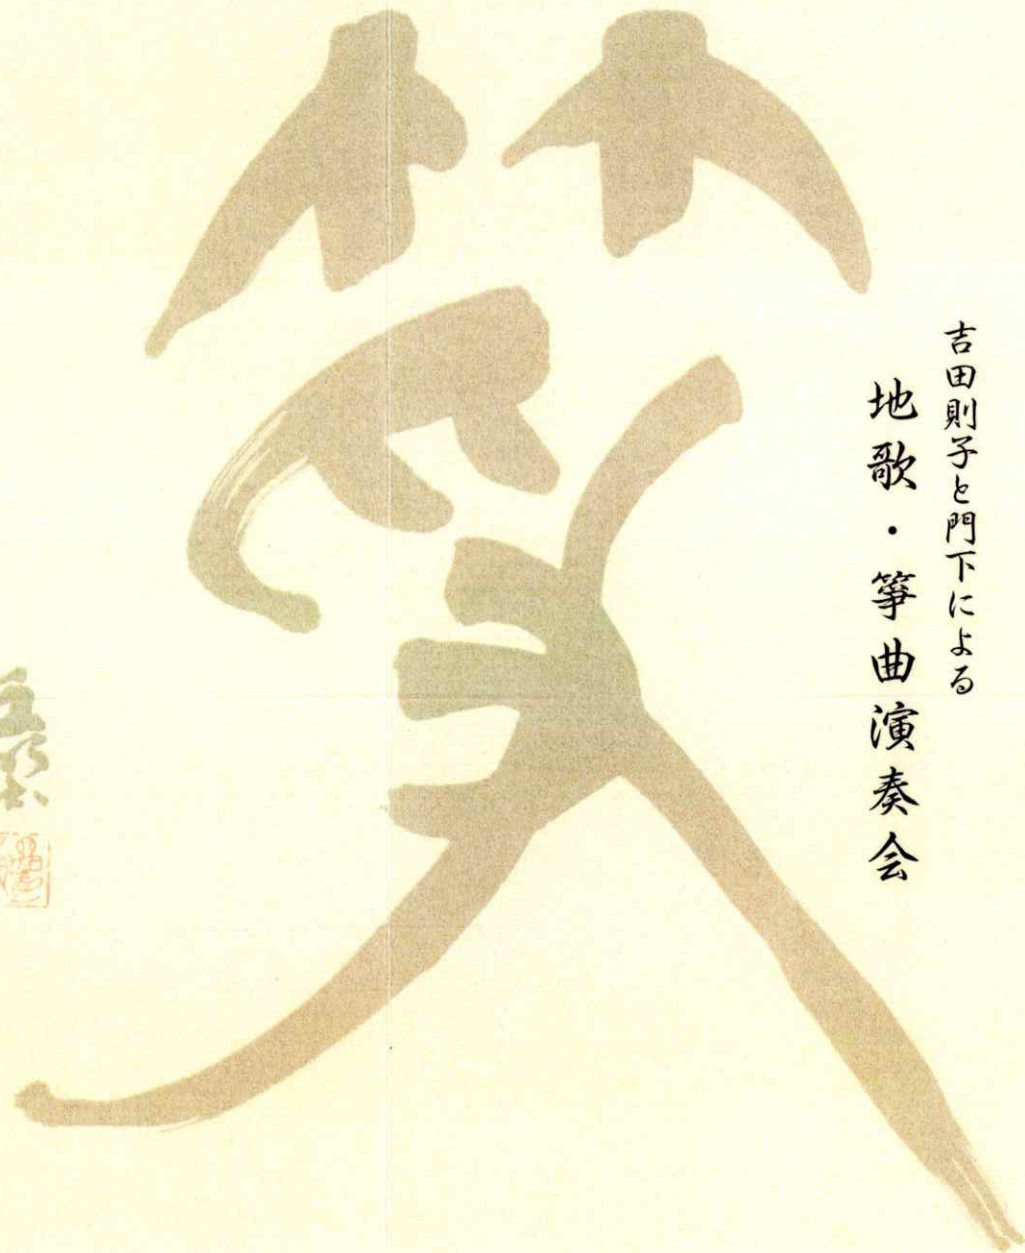 吉田則子と門下による
地歌・箏曲演奏会
箏